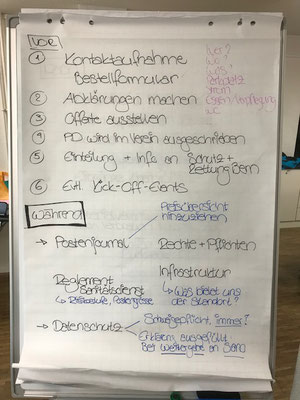 VOR
① Kontaktaufnahme
Bestellformular
② Abklärungen machen
③ Offerte ausstellen
④ PD wird im Verein ausgeschrieben
⑤ Einteilung + Info an Schutz +
Rettung Bern
⑥ Evtl. Kick-Off-Events
Wer?
Wo
Was?
Strom
WC
Während
Preisübersicht
hinzuziehen
→ Postenjournal
Rechte + Pflichten
Reglement
Sanitätsdienst
Infrastruktur
↳ Was bietet uns
der Standort?
→ Datenschutz
Schweigepflicht, immer!
Erklärung ausgefüllt
Bei Weitergabe an